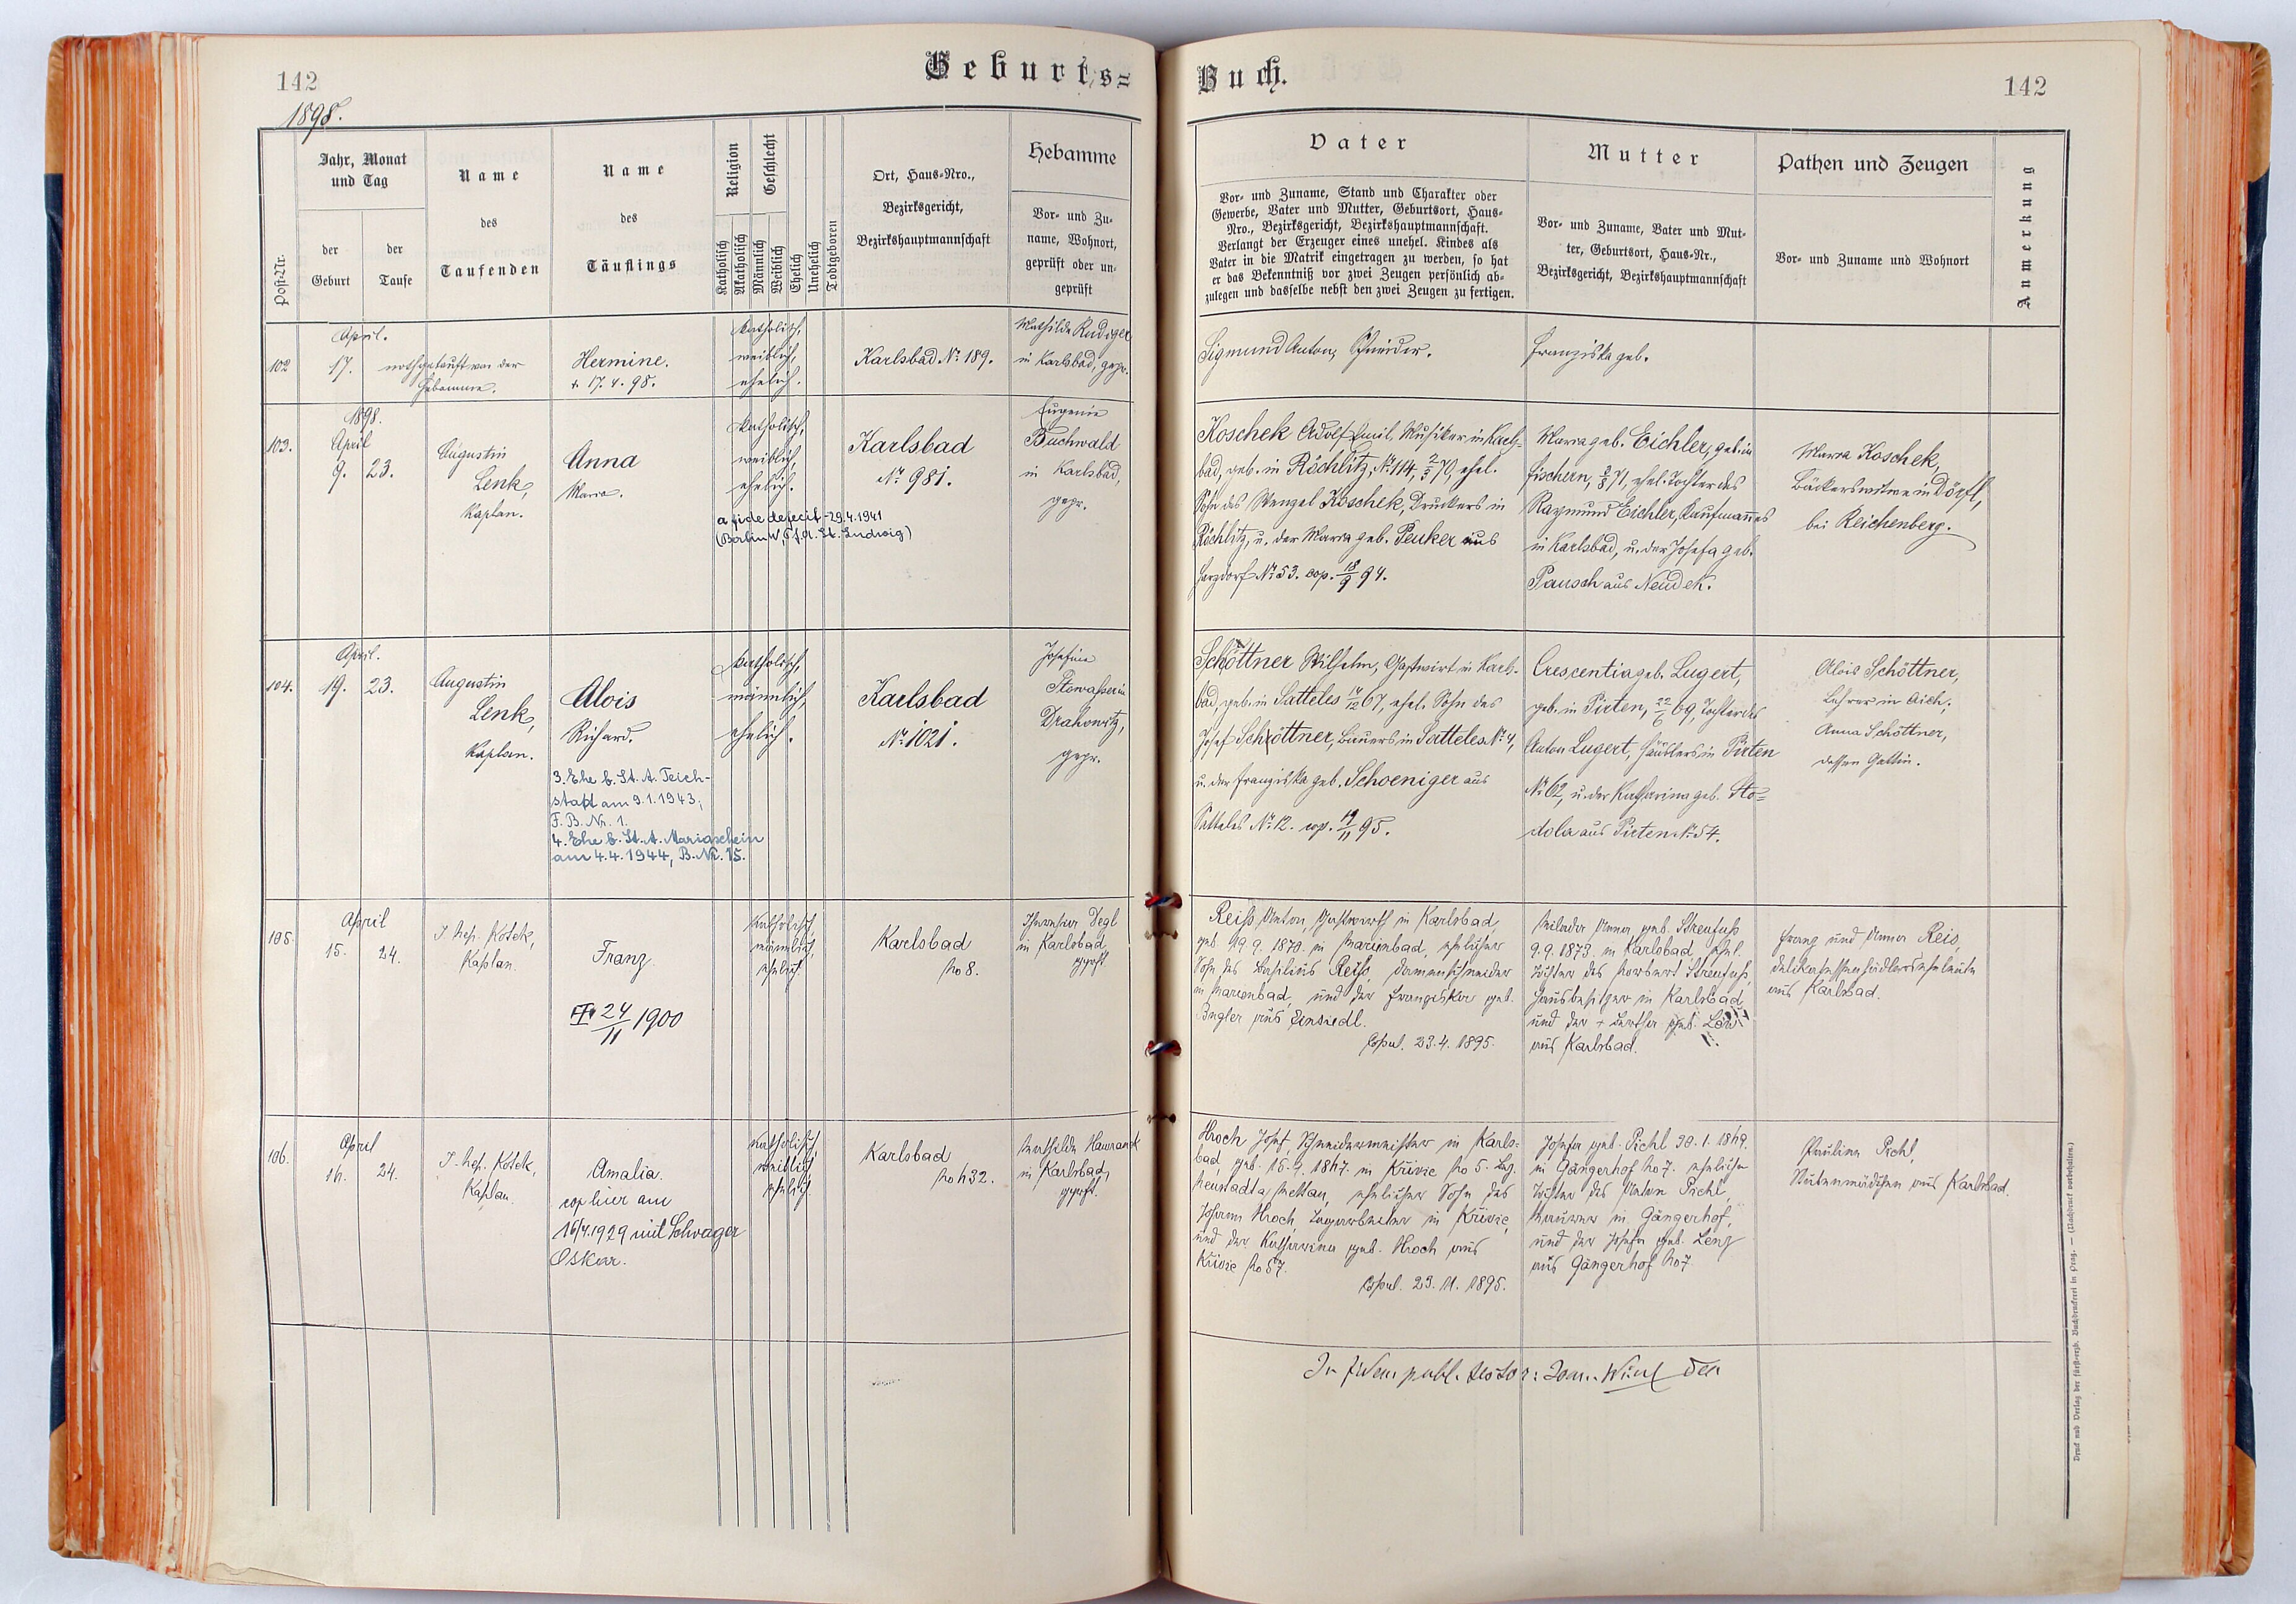 142
Geburts=
1898.
Post-Nr.
Jahr, Monat
und Tag
der
Geburt
der
Taufe
Name
des
Taufenden
Name
des
Täuflings
Religion
Geschlecht
Katholisch
Akatholisch
Männlich
Weiblich
Ehelich
Unehelich
Todtgeboren
Ort, Haus-Nro.,
Bezirksgericht,
Bezirkshauptmannschaft
Hebamme
Vor- und Zu-
name, Wohnort,
geprüft oder un-
geprüft
102
April.
17.
nothgetauft von der
Hebamme.
Hermine.
† 17. 4. 98.
katholisch,
weiblich,
ehelich.
Karlsbad No. 189.
Mathilde Rudiger
in Karlsbad, gepr.
103.
1898.
April
9. 23.
Augustin
Lenk,
Kaplan.
Anna
Maria.
katholisch,
weiblich,
ehelich.
a fide defecit - 29.4.1941
(Berlin W, Pf. A. St. Ludwig)
Karlsbad
No. 981.
Eugenie
Buchwald
in Karlsbad,
gepr.
104.
April.
19. 23.
Augustin
Lenk,
Kaplan.
Alois
Richard.
3. Ehe b. St. A. Teich-
statt am 9.1.1943,
F. B. Nr. 1.
4. Ehe b. St. A. Mariaschein
am 4.4.1944, B. Nr. 15.
katholisch,
männlich,
ehelich.
Karlsbad
No. 1021.
Josefine
Stowasser in
Drahowitz,
gepr.
105.
April
15. 24.
J. Nep. Kotek,
Kaplan.
Franz.
24/11 1900
katholisch,
männlich,
ehelich.
Karlsbad
No 8.
Degl
in Karlsbad
gepft.
106.
April
24.
J. Nep. Kotek,
Kaplan.
Amalia.
cop hier am
16/4.1929 mit Schwager
Oskar.
katholisch,
weiblich,
ehelich.
Karlsbad
Mathilde
in Karlsbad,
gepft.
Buch.
142
Vater
Vor- und Zuname, Stand und Charakter oder
Gewerbe, Vater und Mutter, Geburtsort, Haus-
Nro., Bezirksgericht, Bezirkshauptmannschaft.
Verlangt der Erzeuger eines unehel. Kindes als
Vater in die Matrik eingetragen zu werden, so hat
er das Bekenntniß vor zwei Zeugen persönlich ab-
zulegen und dasselbe nebst den zwei Zeugen zu fertigen.
Mutter
Vor- und Zuname, Vater und Mut-
ter, Geburtsort, Haus-Nr.,
Bezirksgericht, Bezirkshauptmannschaft
Pathen und Zeugen
Vor- und Zuname und Wohnort
Anmerkung
Sigmund Anton, Schneider.
Franziska geb.
Koschek Adolf Emil, Musiker in Karls-
bad, geb. in Röchlitz, No. 114, 2/3 70, ehel.
Sohn des Wenzel Koschek, Druckers in
Röchlitz, u. der Maria geb. Peuker aus
Harzdorf No. 53. cop. 18/9 94.
Maria geb. Eichler, geb. in
Fischern, 71, ehel. Tochter des
Raymund Eichler, Kaufmannes
in Karlsbad, u. der Josefa geb.
Pausch aus Neudek.
Maria Koschek,
Bäckerswitwe in Dörfl,
bei Reichenberg.
Schöttner Wilhelm, Gastwirt in Karls-
bad, geb. in Satteles 14/12 67, ehel. Sohn des
Josef Schöttner, Bauers in Satteles No. 4,
u. der Franziska geb. Schoeniger aus
Satteles No. 12. cop. 19/11 95.
Crescentia geb. Lugert,
geb. in Pirten, 22/6 69, Tochter des
Anton Lugert, Häuslers in Pirten
No. 62, u. der Katharina geb. Sto=
dola aus Pirten No. 54.
Alois Schöttner,
Lehrer in Aich,
Anna Schöttner,
dessen Gattin.
Reiß Anton, Gastwirth in Karlsbad,
geb. 19. 9. 1870. in Marienbad, ehelicher
Sohn des Basilius Reiß, Damenschneider
in Marienbad, und der Franziska geb.
Bugler aus Einsiedl.
Copul. 23. 4. 1895.
Anna geb. Streufuß
9.9.1873. in Karlsbad, ehel.
Tochter des Norbert Streufuß,
Hausbesitzer in Karlsbad
und der † Bertha geb. Löw
aus Karlsbad.
Franz und Anna Reis,
Delikatessenhändlerseheleute
aus Karlsbad.
Hroch Josef, Schneidermeister in Karls=
bad, geb. in Křivic No 5. Bez.
Neustadt a Mettau, ehelicher Sohn des
Johann Hroch, Tagarbeiter in Křivic,
und der Katharina geb. Hroch aus
Křivic No 57.
Copul. 23. 11. 1895.
Josefa geb. Pichl 30. 1. 1869.
in Gängerhof No 7. eheliche
Tochter des Anton Pichl,
Maurer in Gängerhof,
und der Josefa geb. Lenz
aus Gängerhof No 7.
Paulina Pichl,
Stubenmädchen aus Karlsbad.
In fidem publ. testor:
Druck und Verlag der fürst-erzb. Buchdruckerei in Prag. — (Nachdruck vorbehalten.)